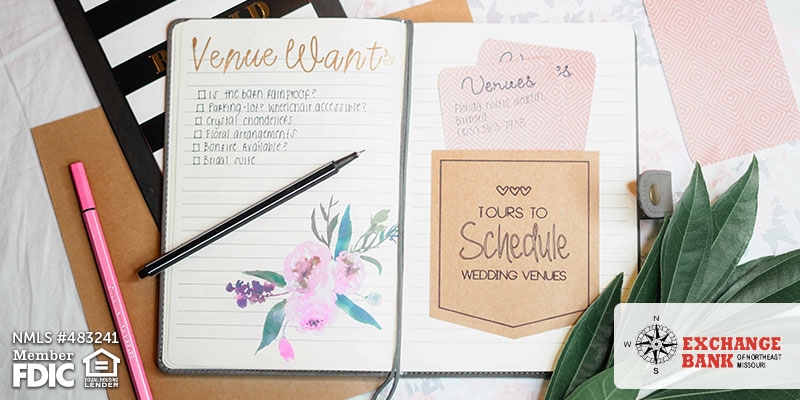 Venue Wants
Is the barn rainproof?
Parking-lot? Wheelchair accessible?
Crystal chandeliers
Floral arrangements
Bonfire Available?
Bridal suite
Venues
TOURS TO
Schedule
WEDDING VENUES
NMLS #483241
Member
FDIC
EQUAL HOUSING
LENDER
N
W
E
S
EXCHANGE
BANK
OF NORTHEAST
MISSOURI